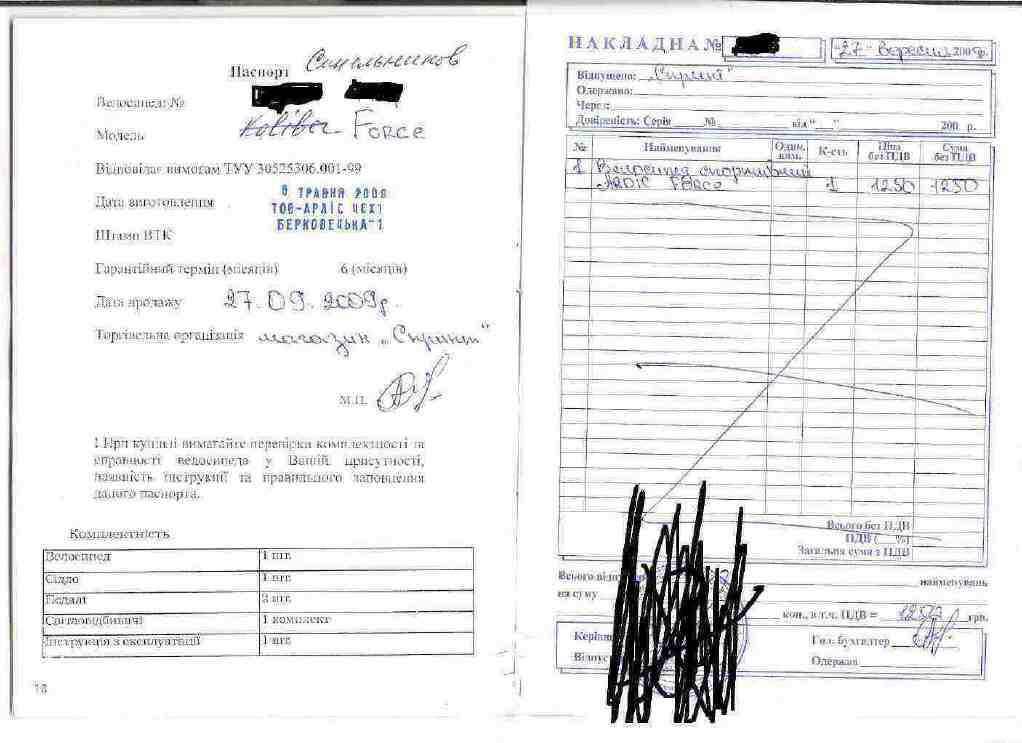 Паспорт Синельников
Велосипед: №
Модель Kaliber Force
Відповідає вимогам ТУУ 30525306.001-99
Дата виготовлення 6 ТРАВНЯ 2009
ТОВ-АРДІС ЦЕХ1
Штамп ВТК БЕРКОВЕЦЬКА-1
Гарантійний термін (місяців) 6 (місяців)
Дата продажу 27.09.2009р.
Торгівельна організація магазин „Спринт"
М.П.
! При купівлі вимагайте перевірки комплектності та
справності велосипеда у Вашій присутності,
наявність інструкції та правильного заповнення
даного паспорта.
Комплектність
Велосипед 1 шт.
Сідло 1 шт.
Педалі 2 шт.
Світловідбивачі 1 комплект
Інструкція з експлуатації 1 шт.
18
НАКЛАДНА № "27" Вересня 2009р.
Відпущено: „Спринт"
Одержано:
Через:
Довіреність: Серія № від "__" 200 р.
№ Найменування Один. вим. К-сть Ціна без ПДВ Сума без ПДВ
1 Велосипед спортивний
ARDIC FORCE 1 1250 1250
Всього без ПДВ
ПДВ ( %)
Загальна сума з ПДВ
Всього найменувань
на суму
коп., в т.ч. ПДВ = грн.
Гол. бухгалтер
Одержав